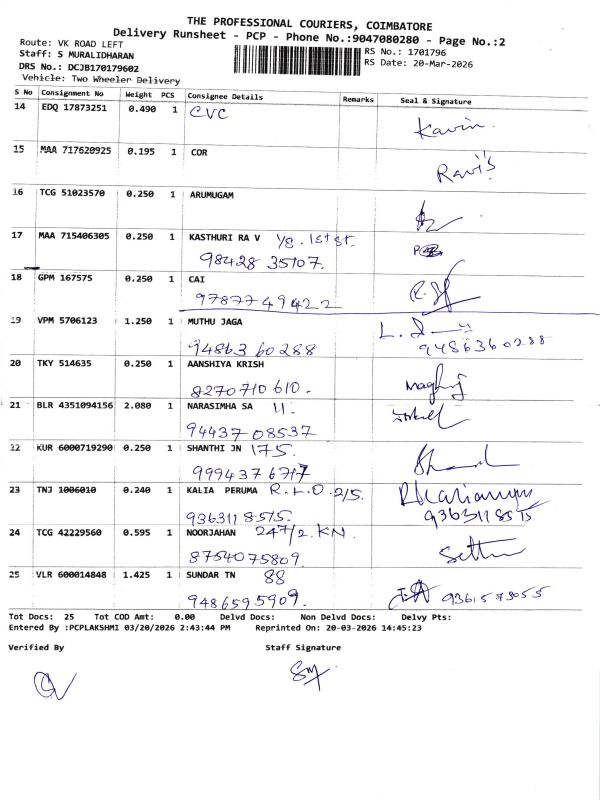 THE PROFESSIONAL COURIERS, COIMBATORE
Delivery Runsheet - PCP - Phone No.:9047080280 - Page No.:2
Route: VK ROAD LEFT
Staff: S MURALIDHARAN
DRS No.: DCJB170179602
Vehicle: Two Wheeler Delivery
RS No.: 1701796
RS Date: 20-Mar-2026
S No Consignment No Weight PCS Consignee Details Remarks Seal & Signature
14 EDQ 17873251 0.490 1 CVC Kavin.
15 MAA 717620925 0.195 1 COR Ravi's
16 TCG 51023570 0.250 1 ARUMUGAM
17 MAA 715406305 0.250 1 KASTHURI RA V 48. 1st st.
98428 35107.
18 GPM 167575 0.250 1 CAI
9787749422
19 VPM 5706123 1.250 1 MUTHU JAGA
94863 60288 9486360288
20 TKY 514635 0.250 1 AANSHIYA KRISH
8270710610.
21 BLR 4351094156 2.080 1 NARASIMHA SA 11.
94437 08537
22 KUR 6000719290 0.250 1 SHANTHI JN 175.
9994376717
23 TNJ 1006010 0.240 1 KALIA PERUMA R.L.O 2/5.
9363118515. 9363118515
24 TCG 42229560 0.595 1 NOORJAHAN 247/2 KN.
8754075809.
25 VLR 600014848 1.425 1 SUNDAR TN 88
9486595909. 9361573055
Tot Docs: 25 Tot COD Amt: 0.00 Delvd Docs: Non Delvd Docs: Delvy Pts:
Entered By :PCPLAKSHMI 03/20/2026 2:43:44 PM Reprinted On: 20-03-2026 14:45:23
Verified By Staff Signature